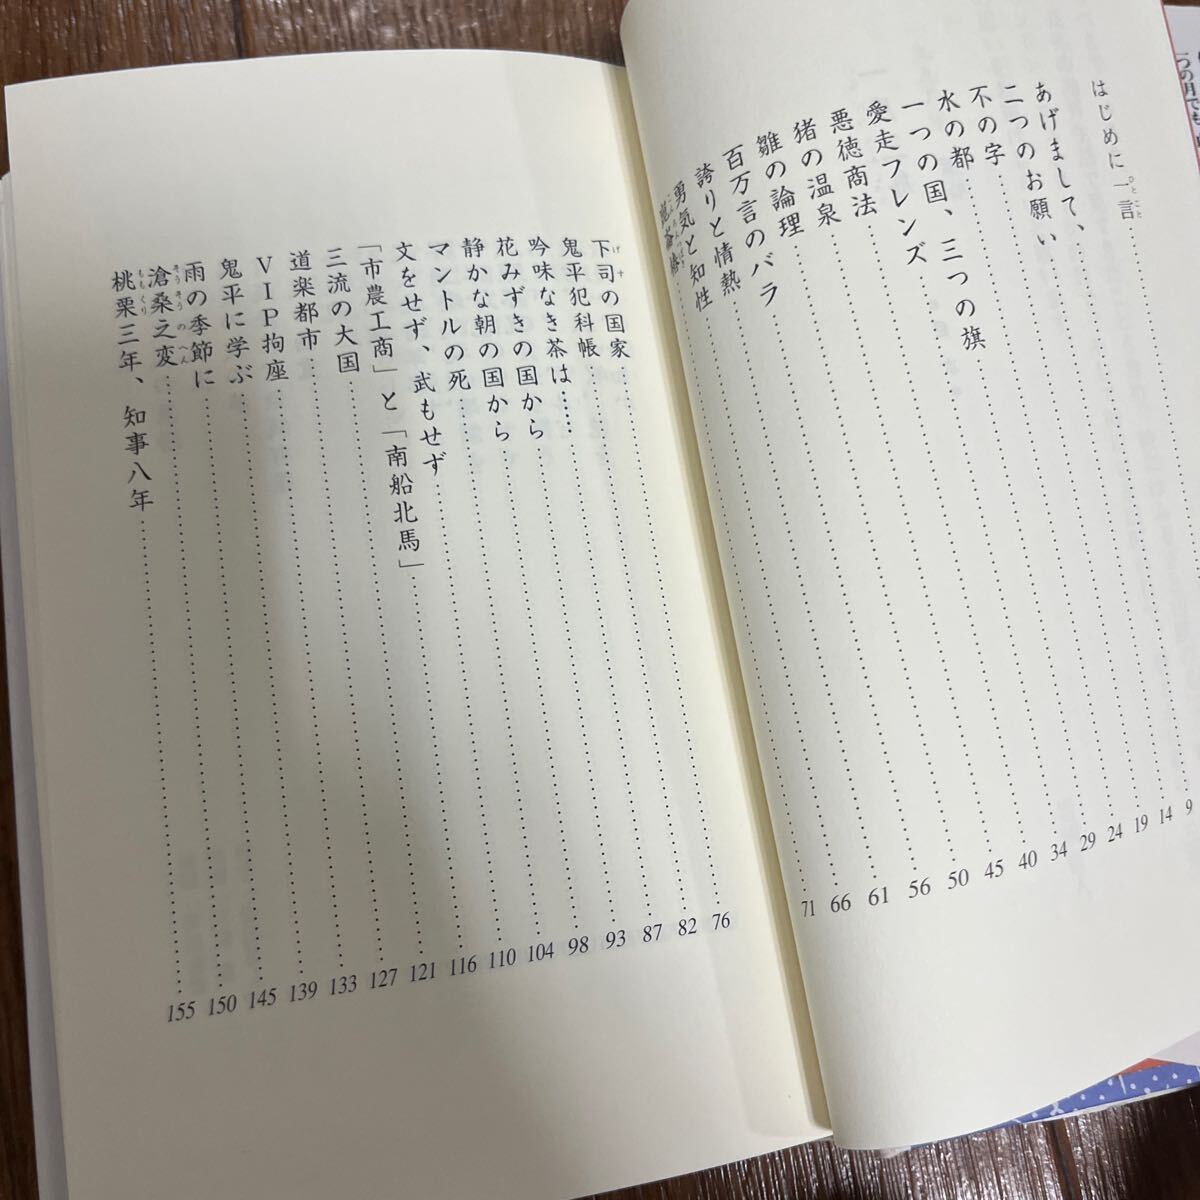 つの月でも
はじめに一言
あげまして、 9
二つのお願い 14
不の字 19
水の都 24
一つの国、三つの旗 29
愛走フレンズ 34
悪徳商法 40
猪の温泉 45
雛の論理 50
百万言のバラ 56
誇りと情熱 61
勇気と知性 66
71
下司の国家 76
鬼平犯科帳 82
吟味なき茶は…… 87
花みずきの国から 93
静かな朝の国から 98
マントルの死 104
文をせず、武もせず 110
「市農工商」と「南船北馬」 116
三流の大国 121
道楽都市 127
VIP拘座 133
鬼平に学ぶ 139
雨の季節に 145
滄桑之変 150
桃栗三年、知事八年 155